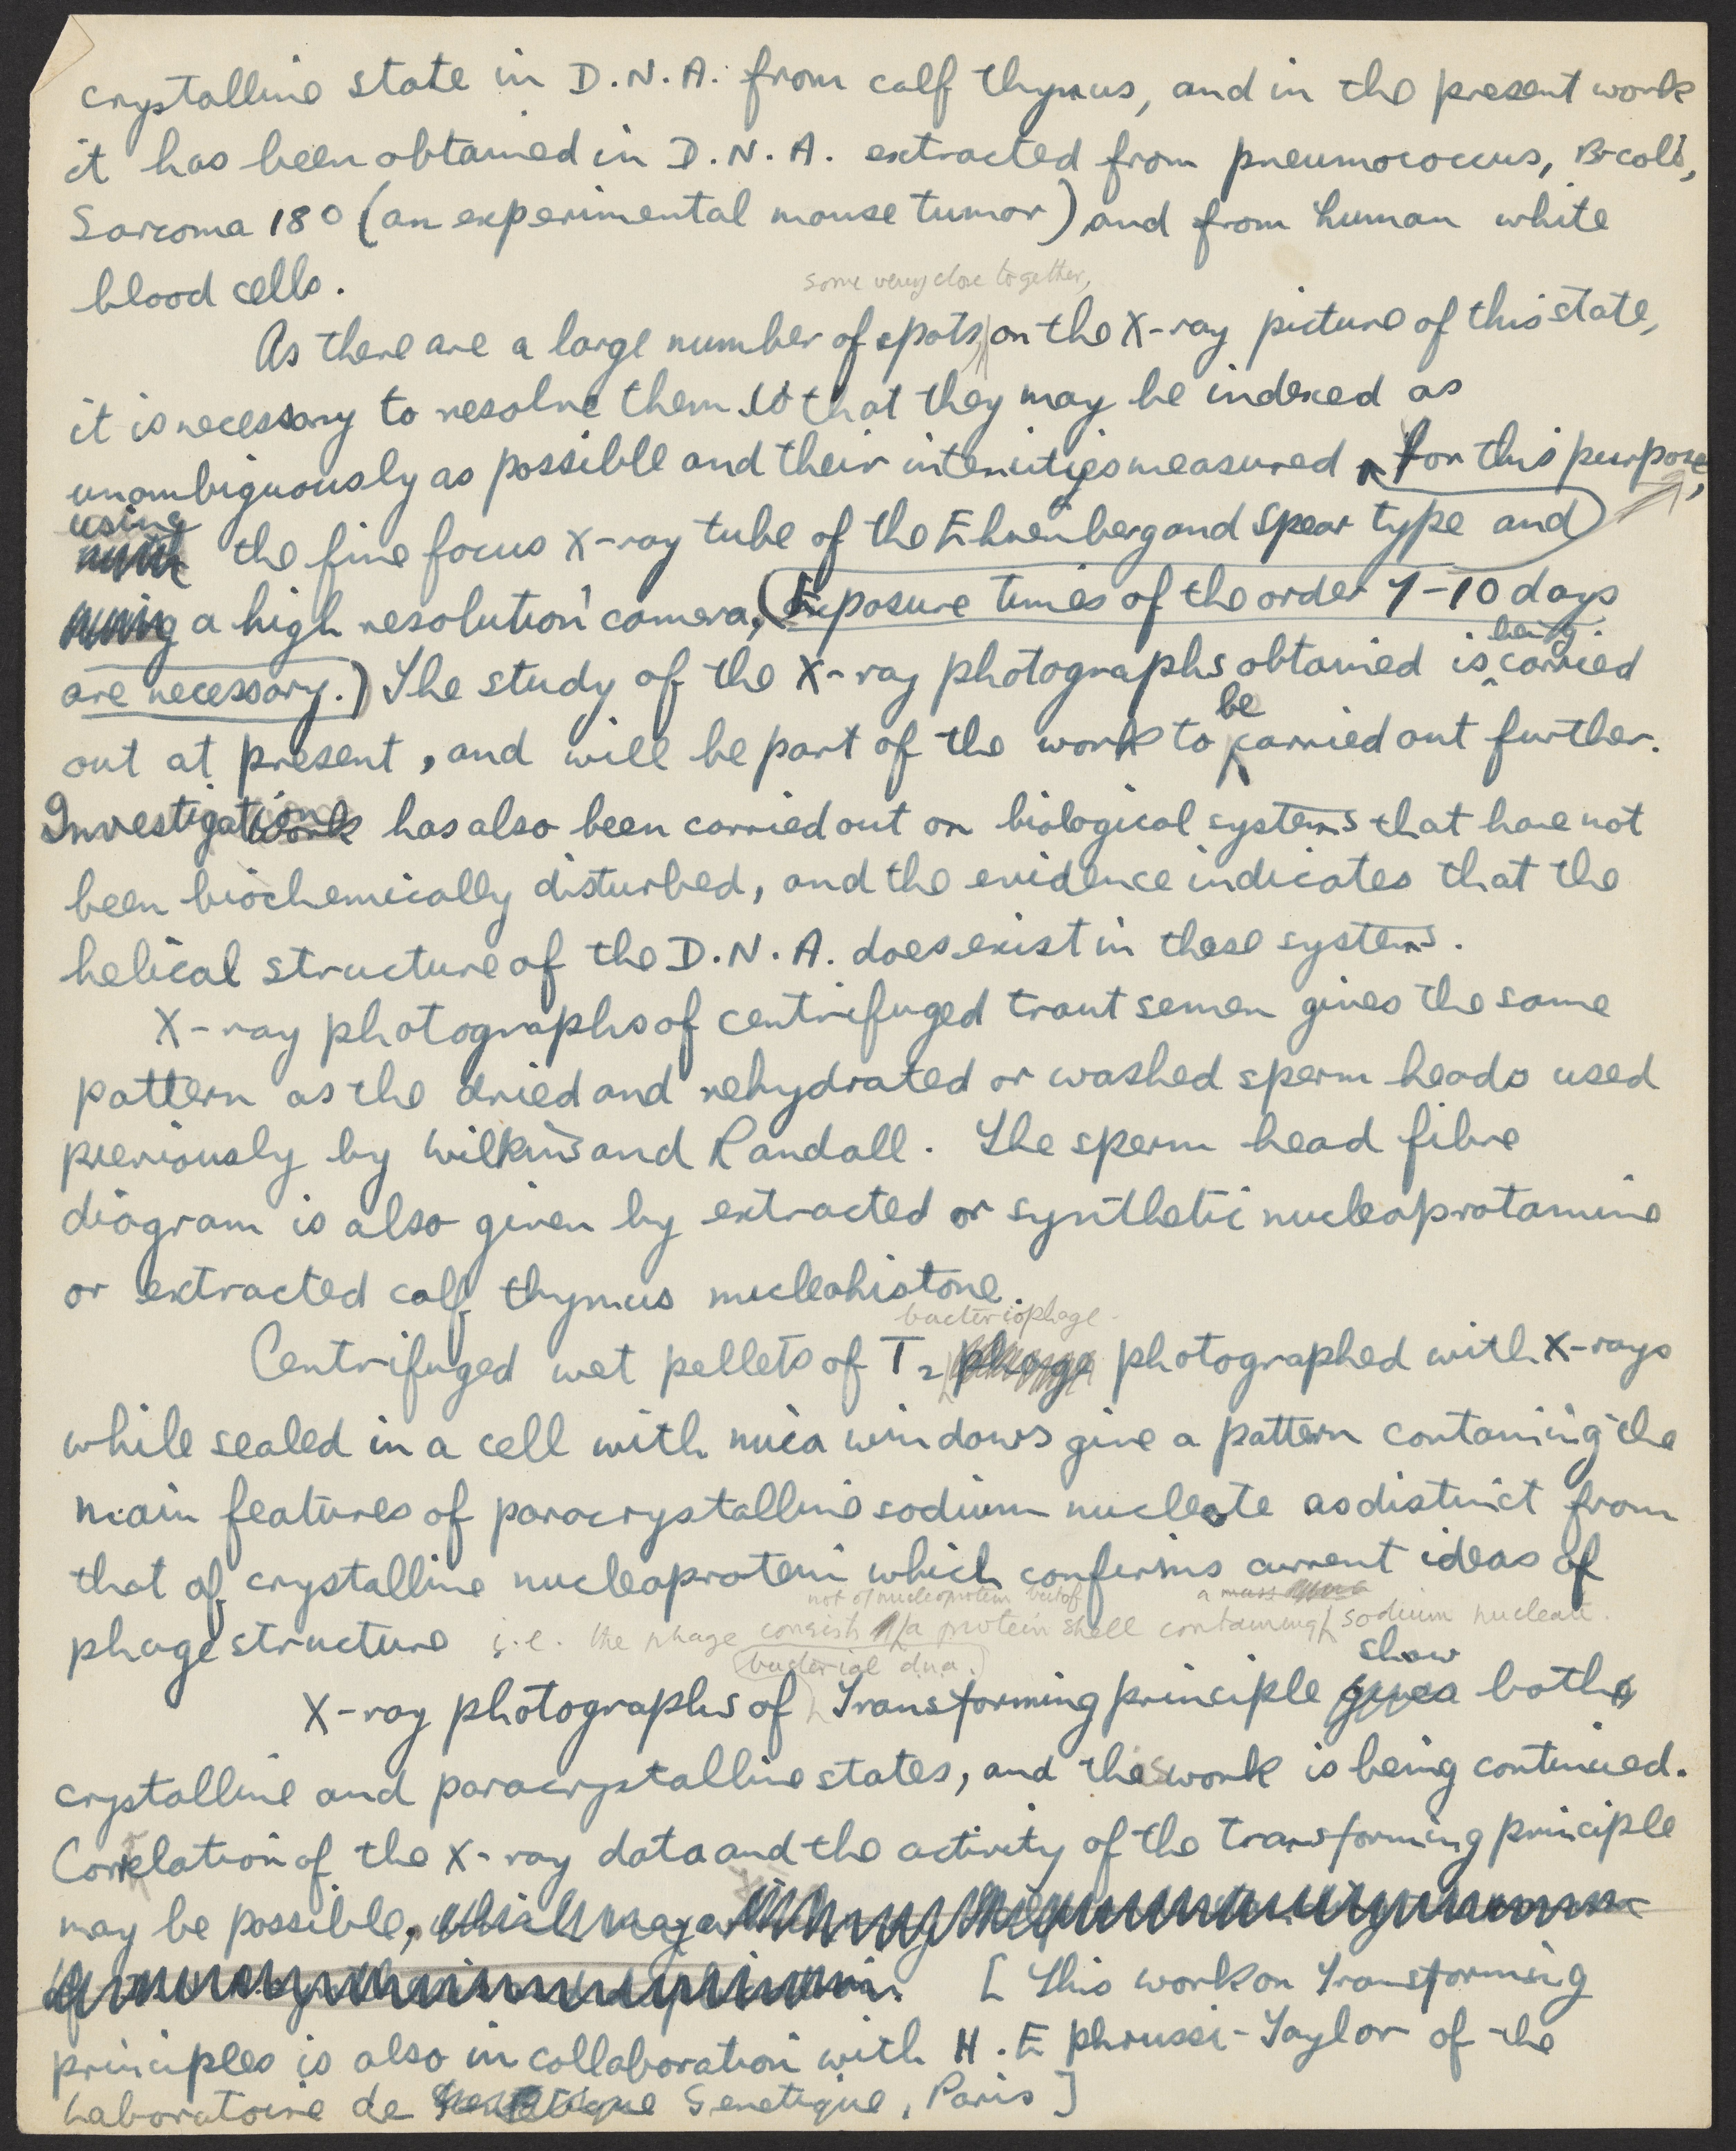 crystalline state in D.N.A. from calf thymus, and in the present work
it has been obtained in D.N.A. extracted from pneumococcus, B-coli,
Sarcoma 180 (an experimental mouse tumor) and from human white
blood cells.
some very close together,
As there are a large number of spots, on the X-ray picture of this state,
it is necessary to resolve them so that they may be indexed as
unambiguously as possible and their intensities measured for this purpose,
using
the fine focus X-ray tube of the Ehrenberg and Spear type and
using a high resolution camera, (Exposure times of the order 7-10 days
being
are necessary.) The study of the X-ray photographs obtained is carried
be
out at present, and will be part of the work to carried out further.
Investigation work has also been carried out on biological systems that have not
been biochemically disturbed, and the evidence indicates that the
helical structure of the D.N.A. does exist in these systems.
X-ray photographs of centrifuged trout semen gives the same
pattern as the dried and rehydrated or washed sperm heads used
previously by Wilkins and Randall. The sperm head fibre
diagram is also given by extracted or synthetic nucleoprotamine
or extracted calf thymus nucleohistone.
bacteriophage
Centrifuged wet pellets of T2 phage photographed with X-rays
while sealed in a cell with mica windows give a pattern containing the
main features of paracrystalline sodium nucleate as distinct from
that of crystalline nucleoprotein which confirms current ideas of
not of nucleoprotein but of a mass
phage structure i.e. the phage consists a protein shell containing sodium nucleate.
bacterial dna. show
X-ray photographs of Transforming principle gives both
crystalline and paracrystalline states, and this work is being continued.
Correlation of the X-ray data and the activity of the transforming principle
may be possible, which may
[This work on Transforming
principles is also in collaboration with H. Ephrussi-Taylor of the
Laboratoire de Genetique, Paris]